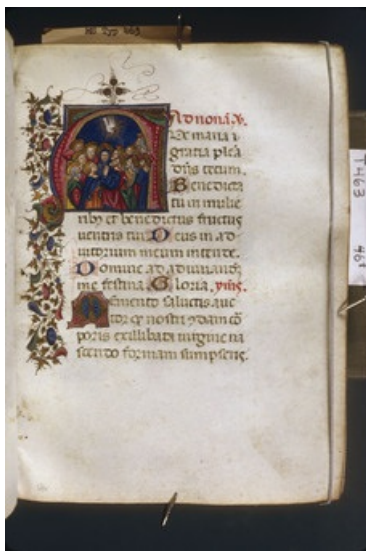 Ad nonā. v̄.
Ue maria i
gratia plēa
dn̄s tecum.
Benedicta
tu in mulie
ribꝫ et benedictus fructus
uentris tui. Deus in ad
iutorium meum intende.
Domine ad adiuuandꝫ
me festina. Gloria. ymꝰ.
Memento salutis auc
tor qꝫ nostri ꝙdam cō
poris ex illibata uirgine na
scendo formam sumpseris.
T463
461